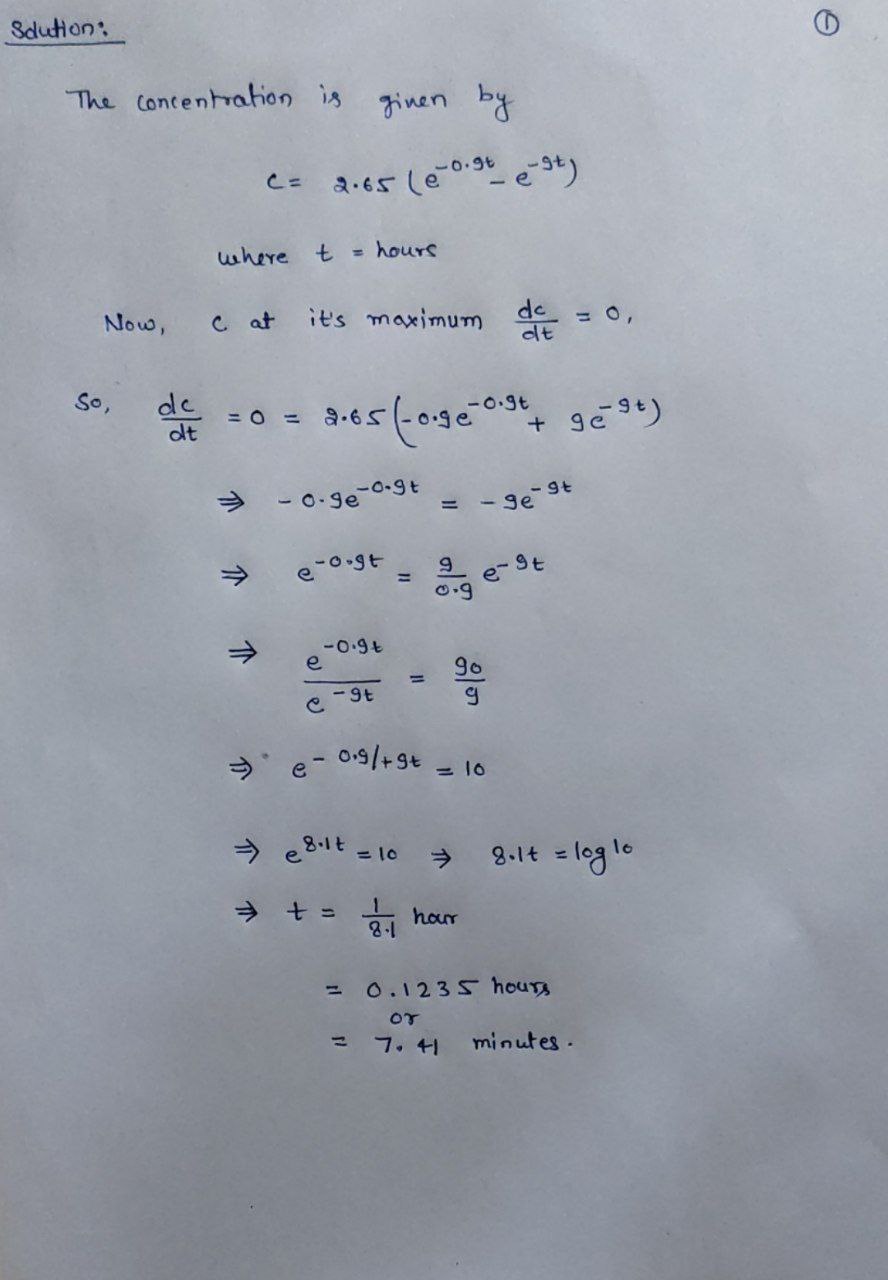 Solution:
①
The concentration is given by
c = 2.65 (e^-0.9t - e^-9t)
where t = hours
Now, c at it's maximum dc/dt = 0,
So, dc/dt = 0 = 2.65 (-0.9e^-0.9t + 9e^-9t)
⇒ -0.9e^-0.9t = -9e^-9t
⇒ e^-0.9t = 9/0.9 e^-9t
⇒ e^-0.9t / e^-9t = 90/9
⇒ e^-0.9/+9t = 10
⇒ e^8.1t = 10 ⇒ 8.1t = log 10
⇒ t = 1/8.1 hour
= 0.1235 hours
or
= 7.41 minutes.